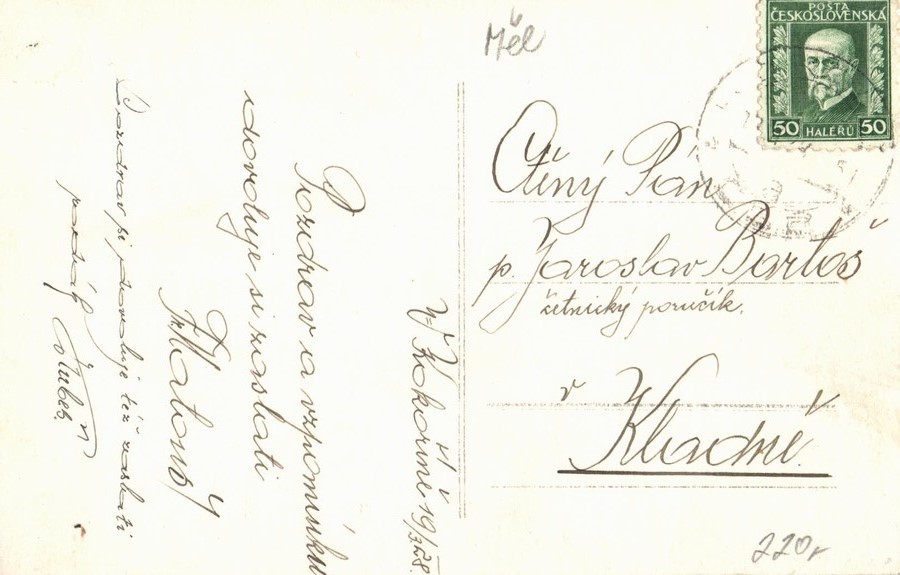 Měl
POSTA
ČESKOSLOVENSKÁ
50 HALÉŘŮ 50
Ctěný Pán
p. Jaroslav Bartoš
četnický poručík.
v
Kladně.
220,-
V Kokoříně 19/3 28.
Pozdrav a vzpomínku
dovoluje si zaslati
Fr. Matouš
Pozdrav si dovoluje též zaslati